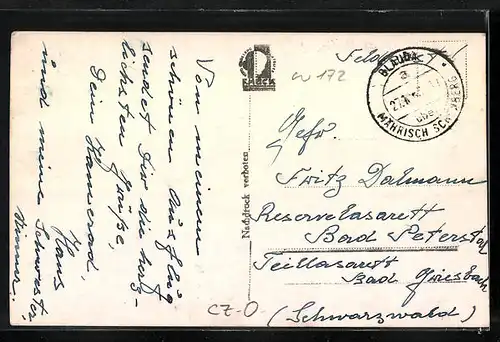 Von meinem
schönen Ausflug
sendet Dir die herz-
lichsten Grüße,
Dein Kamerad
Hans
und meine Schwester
Nachdruck verboten
Feldpost
w 172
MÄHRISCH SCHÖNBERG
Gefr.
Fritz Dalmann
Reservelazarett
Bad Peterstal
Teillazarett
Bad Griesbach
(Schwarzwald)
CZ-O